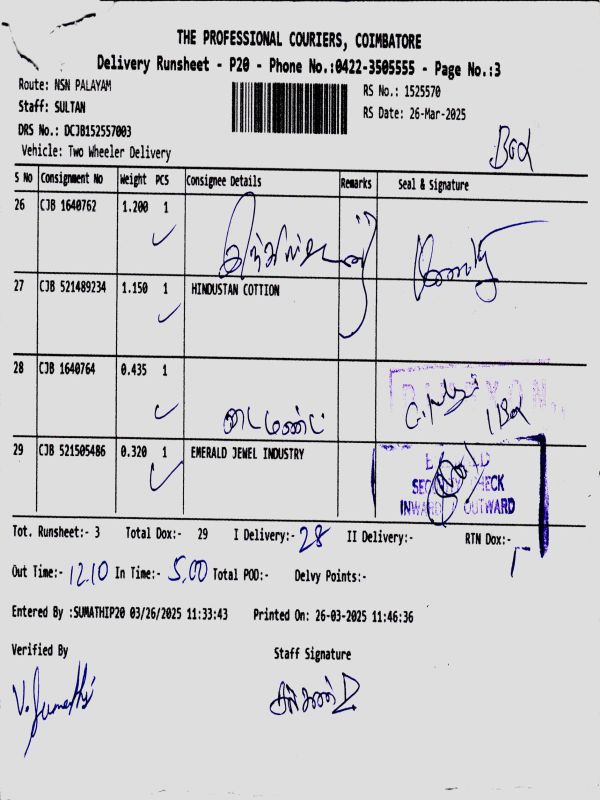 THE PROFESSIONAL COURIERS, COIMBATORE
Delivery Runsheet - P20 - Phone No.:0422-3505555 - Page No.:3
Route: NSN PALAYAM
RS No.: 1525570
Staff: SULTAN
RS Date: 26-Mar-2025
DRS No.: DCJB152557003
Vehicle: Two Wheeler Delivery
S No Consignment No Weight PCS Consignee Details Remarks Seal & Signature
26 CJB 1640762 1.200 1
27 CJB 521489234 1.150 1 HINDUSTAN COTTION
28 CJB 1640764 0.435 1
டைமண்ட்
29 CJB 521505486 0.320 1 EMERALD JEWEL INDUSTRY
INWARD OUTWARD
Tot. Runsheet:- 3 Total Dox:- 29 I Delivery:- 28 II Delivery:- RTN Dox:- 1
Out Time:- 12.10 In Time:- 5.00 Total POD:- Delvy Points:-
Entered By :SUMATHIP20 03/26/2025 11:33:43 Printed On: 26-03-2025 11:46:36
Verified By Staff Signature
V. Sumathi